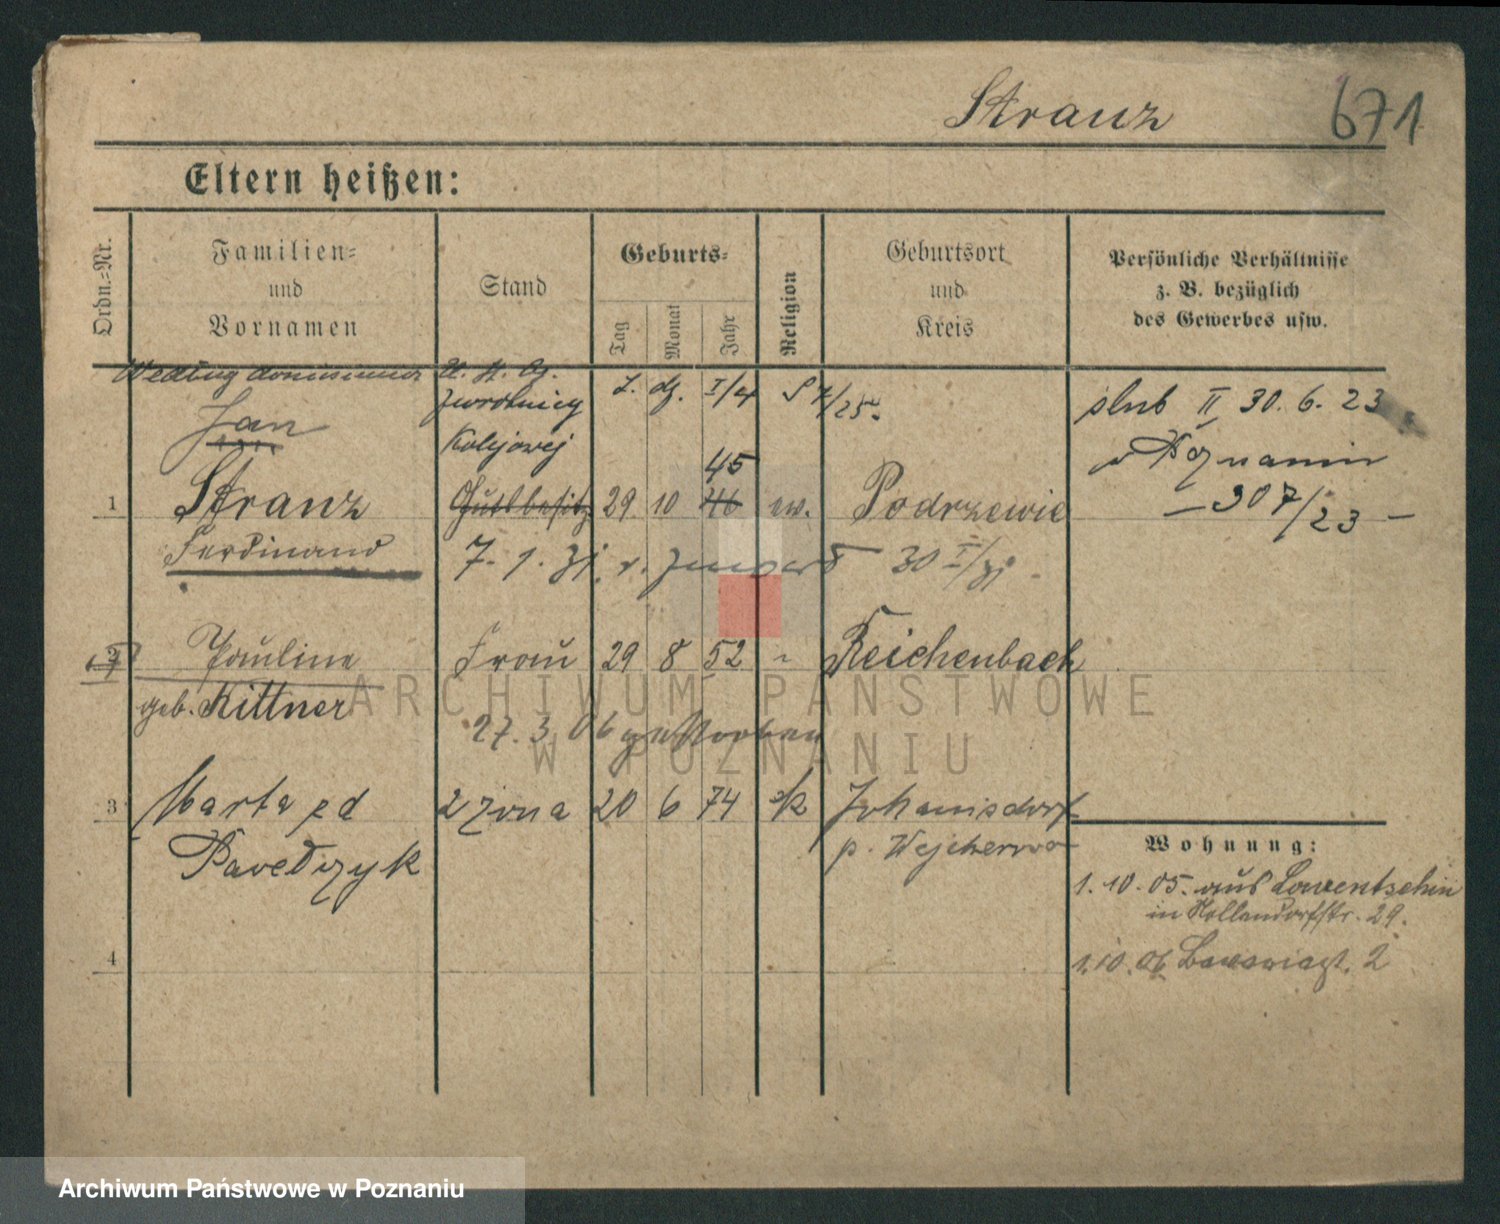 Stranz 671
Eltern heißen:
Ordn.=Nr.
Familien=
und
Vornamen
Stand
Geburts=
Tag
Monat
Jahr
Religion
Geburtsort
und
Kreis
Persönliche Verhältnisse
z. B. bezüglich
des Gewerbes usw.
Jan
Zwrotniczy
Kolejowej
slub II 30. 6. 23
w Poznaniu
— 30 7/23 —
45
1 Stranz Gutsbesitz 29 10 46 ew. Podrzewie
Ferdinand
7. 1. 31. 30 I/31
2 Pauline Frau 29 8 52 " Reichenbach
geb. Kittner
27. 3. 06 gestorben
3 Marta zd 2 żona 20 6 74 rk Johanisdorf
p. Wejcherowo
Pavelczyk
Wohnung:
1. 10. 05. aus Lowentschin
in Hollandorfstr. 29.
4
1. 10. 06 2
ARCHIWUM PAŃSTWOWE
W POZNANIU
Archiwum Państwowe w Poznaniu